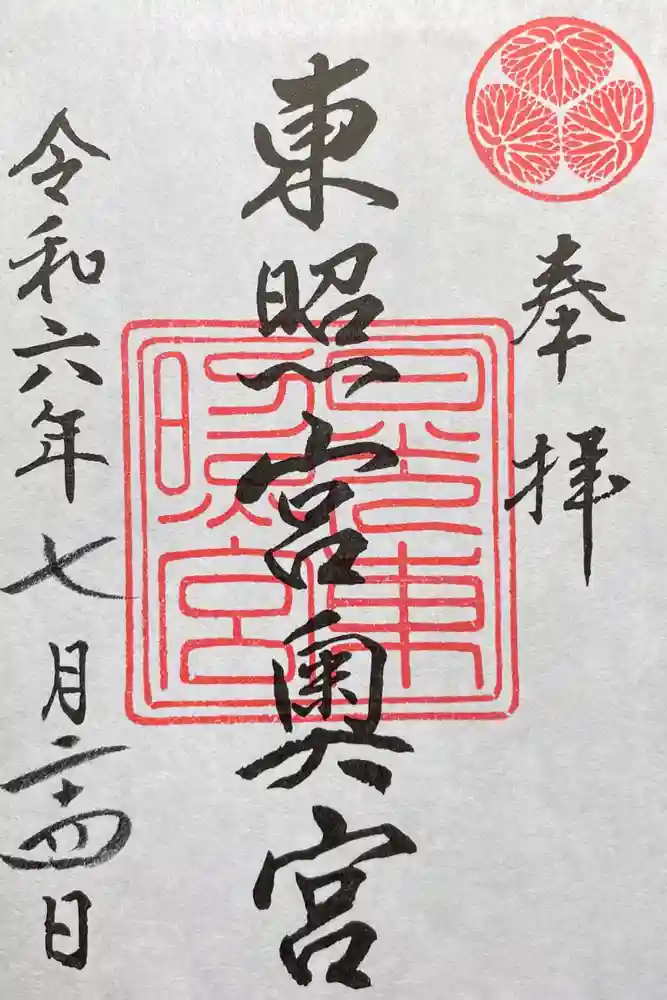 奉拝
東照宮奥宮
日光東照宮
令和六年七月二十四日